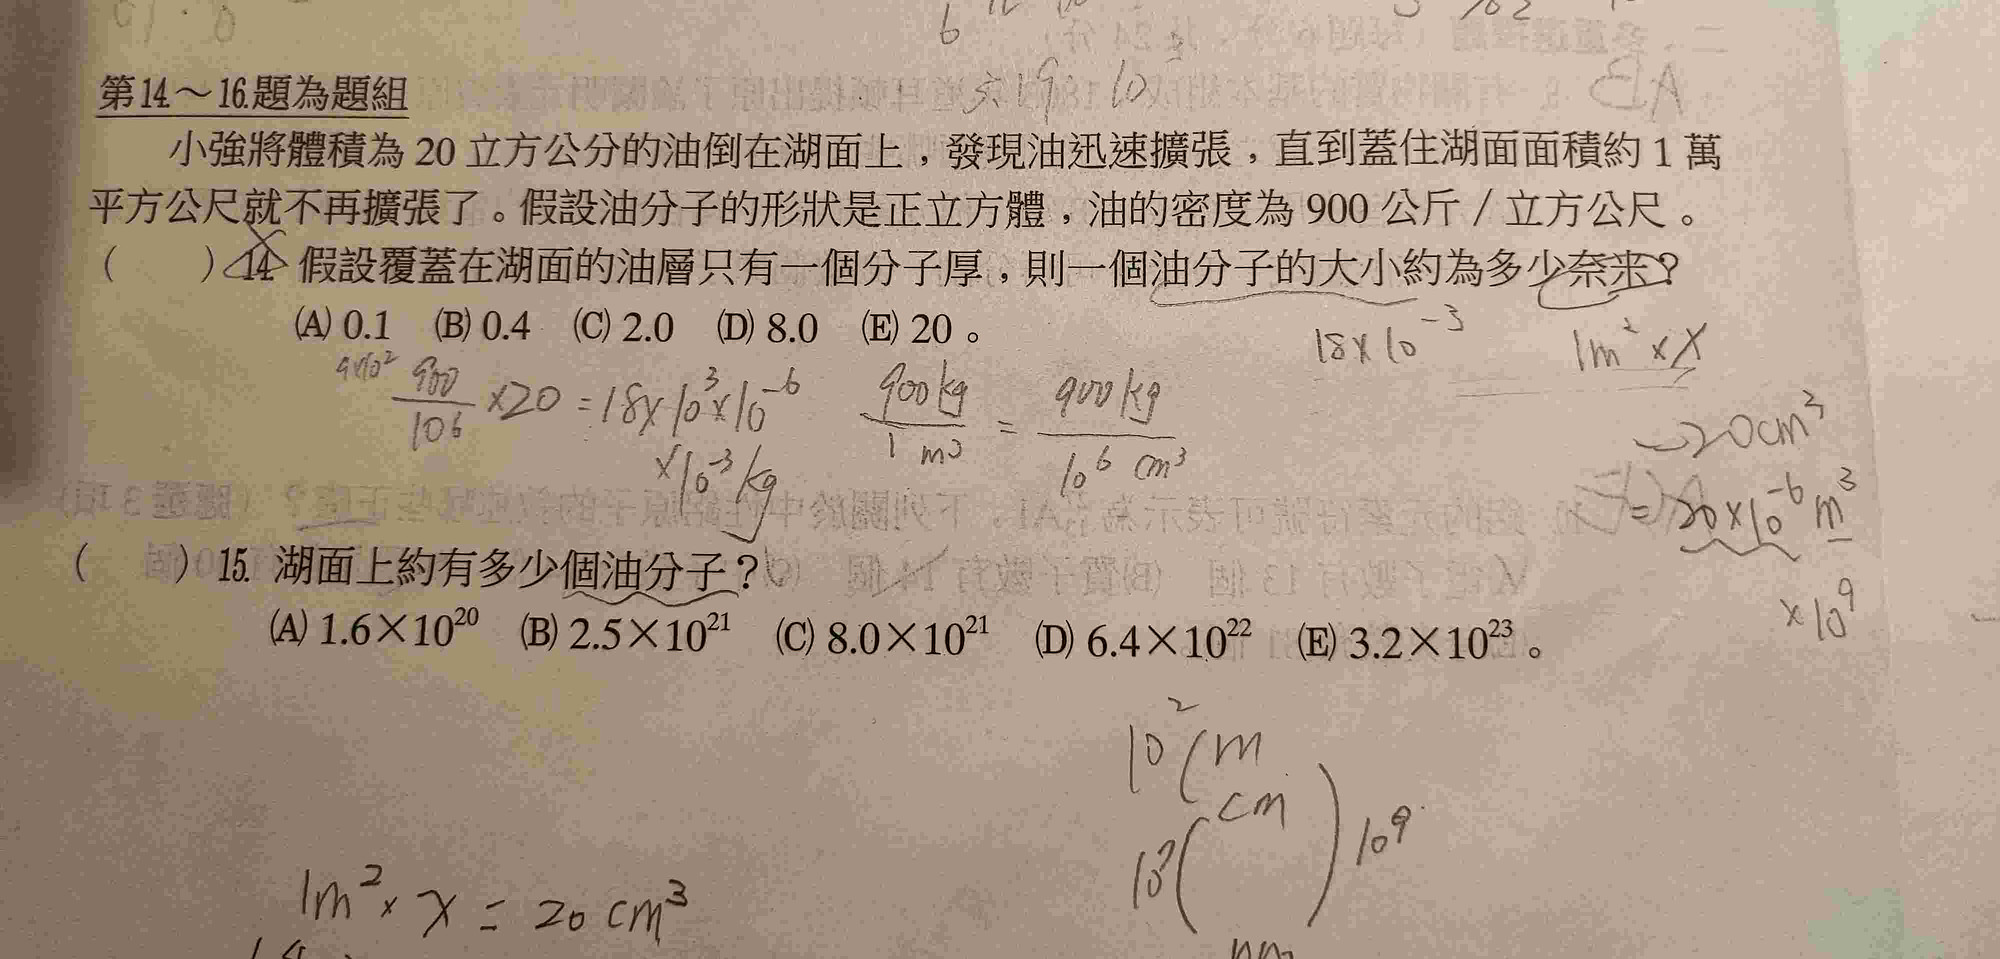 第14.～16.題為題組
小強將體積為 20 立方公分的油倒在湖面上，發現油迅速擴張，直到蓋住湖面面積約 1 萬
平方公尺就不再擴張了。假設油分子的形狀是正立方體，油的密度為 900 公斤／立方公尺。
(　　) 14. 假設覆蓋在湖面的油層只有一個分子厚，則一個油分子的大小約為多少奈米？
(A) 0.1 (B) 0.4 (C) 2.0 (D) 8.0 (E) 20 。
18×10^-3 1m²×X
9×10² 900/10⁶ ×20 = 18×10³×10^-6 900kg/1 m³ = 900kg/10⁶ cm³
×10^-3 kg
→20cm³
= 20×10^-6 m³
×10⁹
(　　) 15. 湖面上約有多少個油分子？
(A) 1.6×10²⁰ (B) 2.5×10²¹ (C) 8.0×10²¹ (D) 6.4×10²² (E) 3.2×10²³ 。
10² m
cm 10⁹
1m² × X = 20 cm³